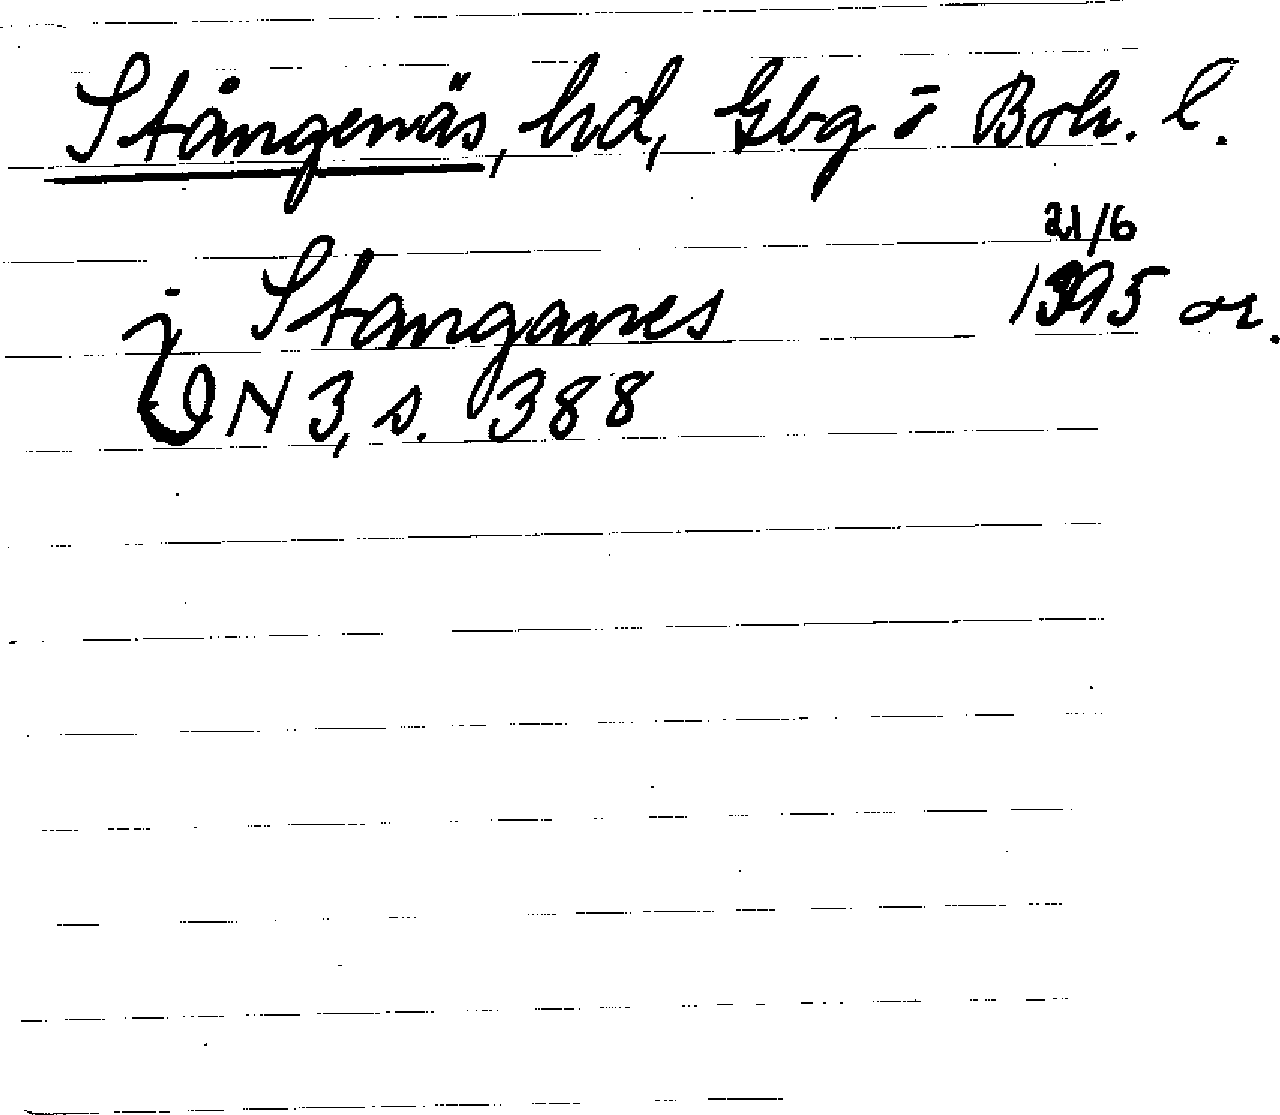 Stångenäs, hd, Gbg o Boh. l.
21/6
j Stanganes 1395 or.
DN 3, s. 388